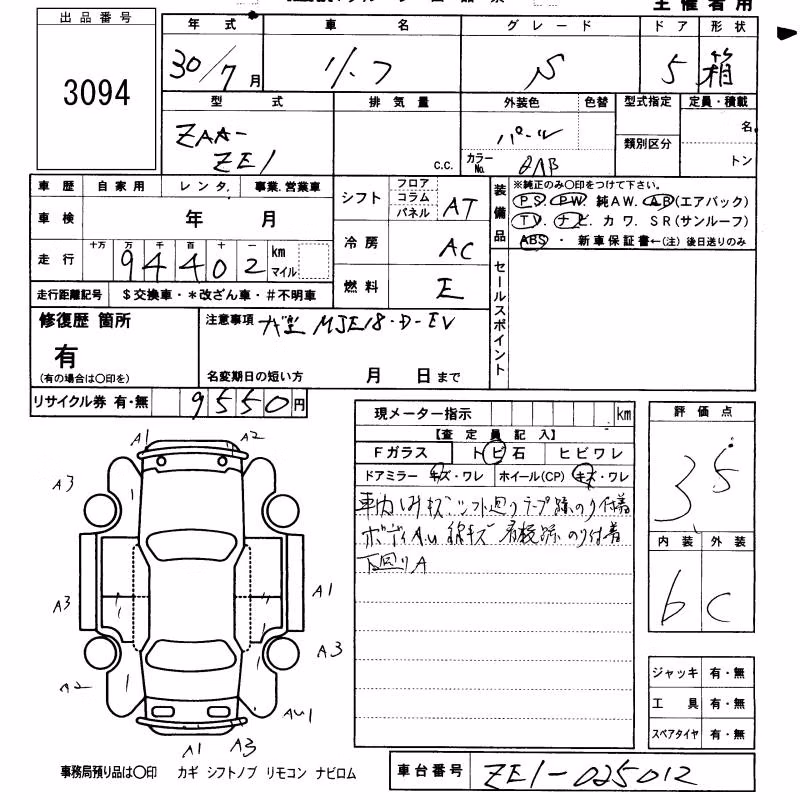 主催者用
出品番号
3094
年式
30/7月
車名
リーフ
グレード
S
ドア
5
形状
箱
型式
ZAA-
ZE1
排気量
C.C.
外装色
パール
色替
カラーNo.
QAB
型式指定
類別区分
定員・積載
名
トン
車歴 自家用 レンタ. 事業.営業車
車検 年 月
走行 十万 万 千 百 十 一
94402
km
マイル
走行距離記号 $交換車・*改ざん車・#不明車
シフト フロア コラム パネル AT
冷房 AC
燃料 E
装備品
※純正のみ〇印をつけて下さい。
PS PW 純AW. AB(エアバック)
TV. ナビ. カワ. SR(サンルーフ)
ABS・ 新車保証書←(注) 後日送りのみ
セールスポイント
修復歴 箇所
有
(有の場合は〇印を)
注意事項 MJE18-D-EV
名変期日の短い方 月 日まで
リサイクル券 有・無 9550円
現メーター指示 km
【査定員記入】
Fガラス トビ石 ヒビワレ
ドアミラー キズ・ワレ ホイール(CP) キズ・ワレ
車内しみキズ シフト廻りテープ跡のり付着
ボディAU 線キズ 看板跡 のり付着
下廻りA
評価点
3.5
内装 外装
b C
ジャッキ 有・無
工具 有・無
スペアタイヤ 有・無
A1 A2
A3
A3
A1
A3
A2
AU1
A1 A3
事務局預り品は〇印 カギ シフトノブ リモコン ナビロム
車台番号 ZE1-025012